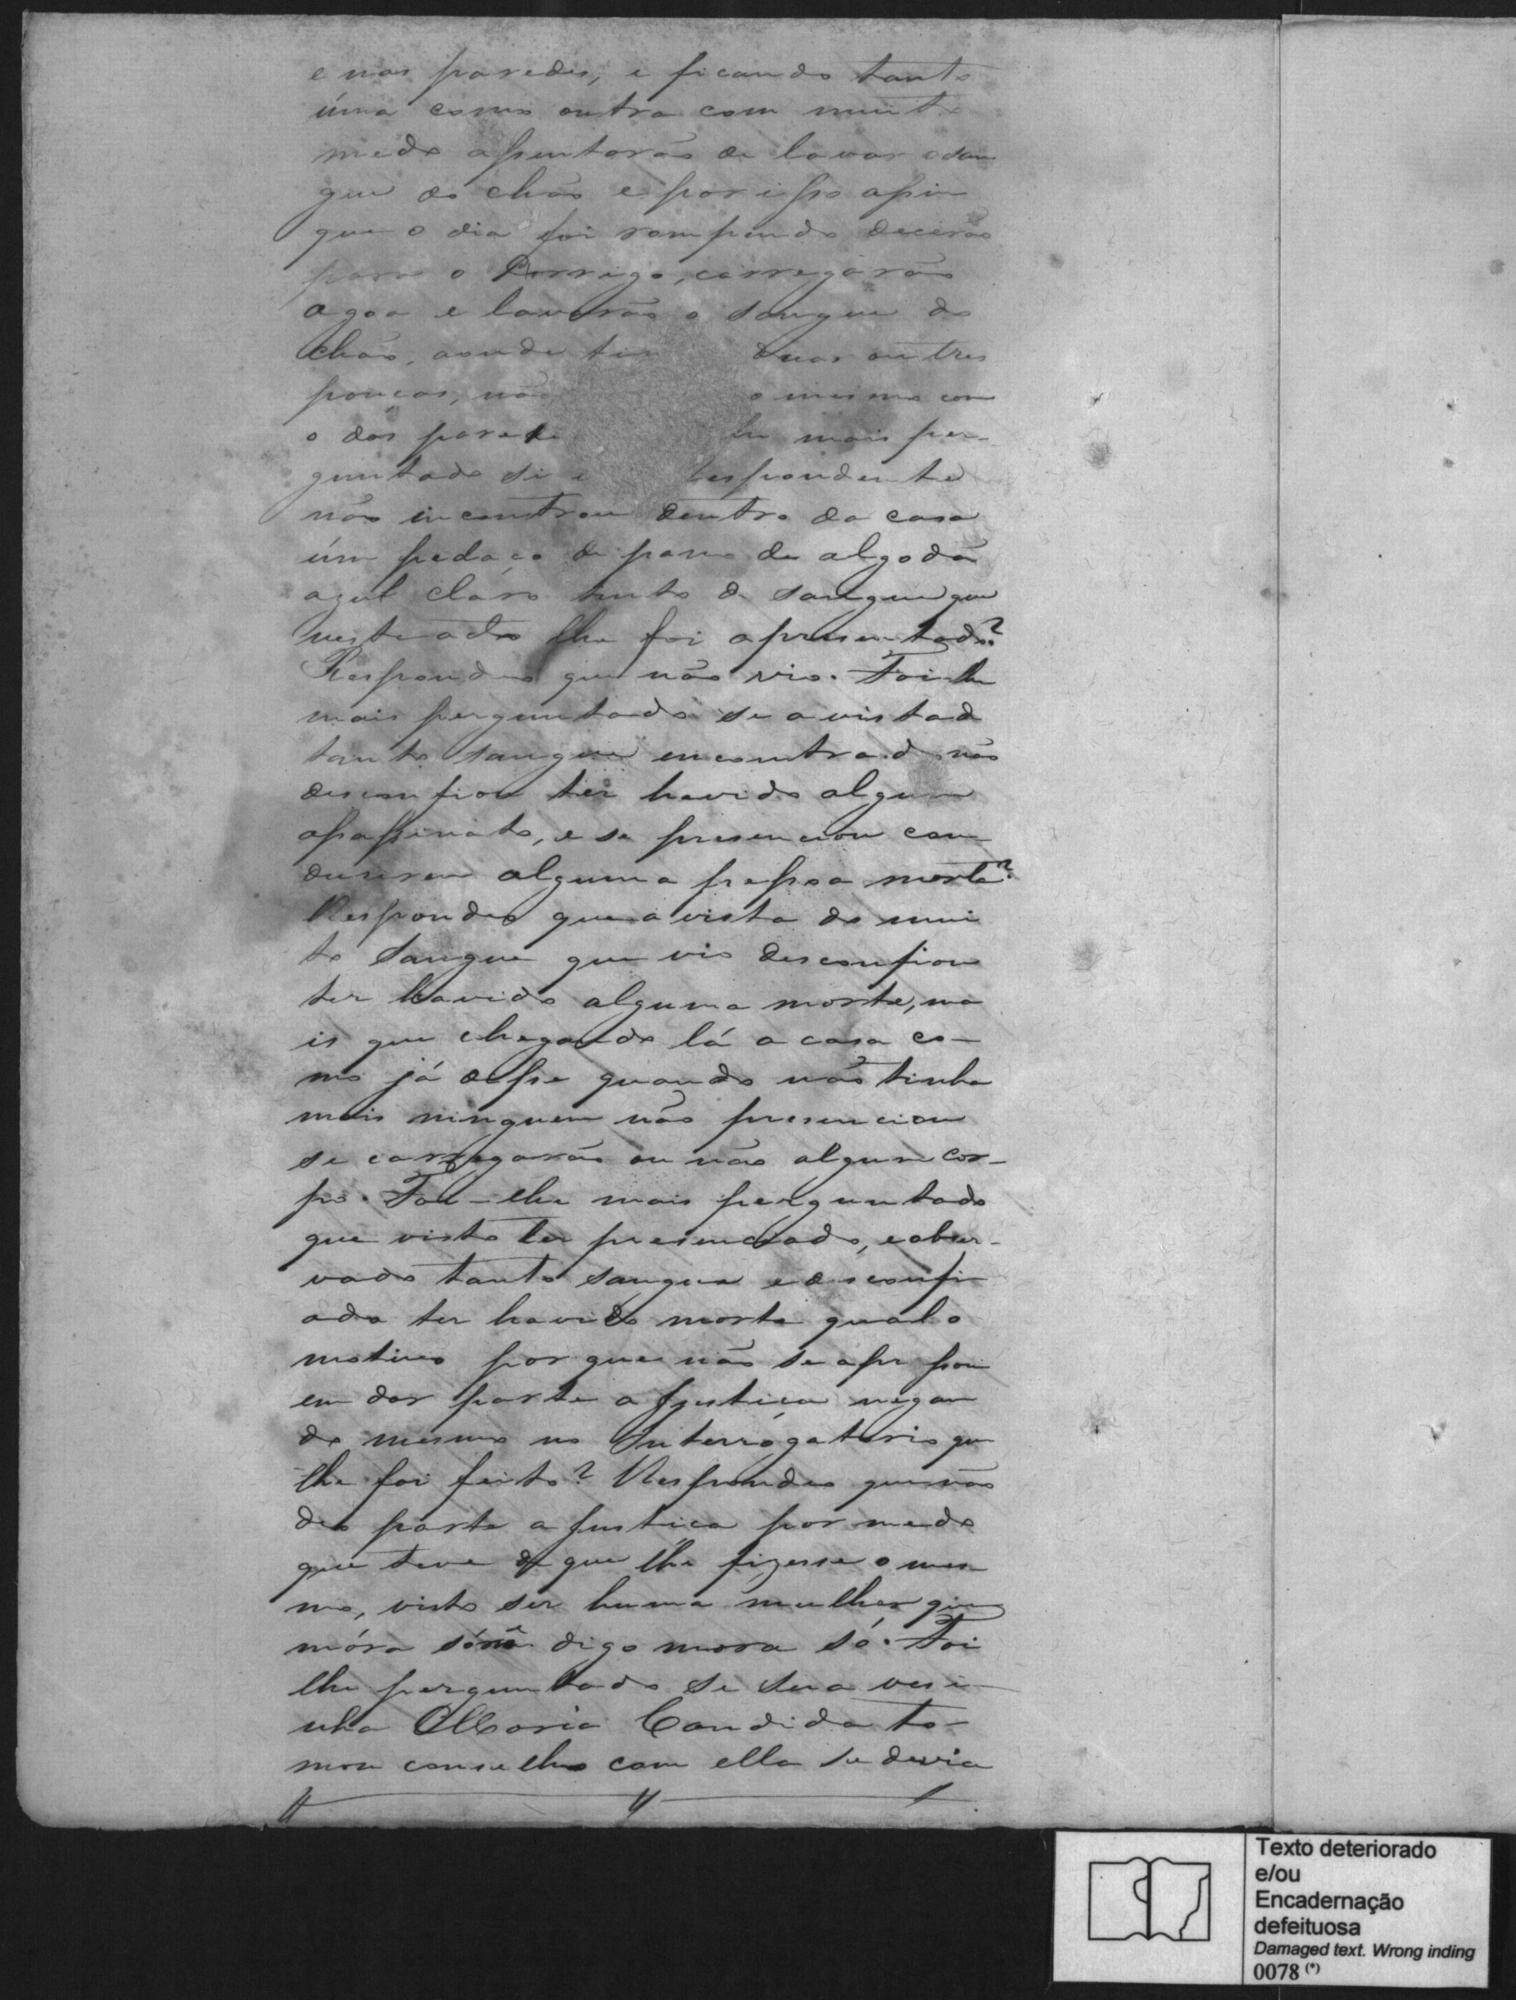 e nas paredes, e ficando tanto
úma como outra com muito
medo assentarão de lavar o san
gue do chão e por isso assim
que o dia foi rompendo decerão
para o Corrigo, carregarão
agoa e lavarão o sangue do
chão, aonde tin duas ou tres
poucas, não o mesmo com
o das parede lhe mais per-
guntado si e respondente
não incontrou dentro da casa
úm pedaço de pano de algodão
azul claro tinto de sangue que
neste acto lhe foi apresentado?
Respondeo que não vio. Foi lhe
mais perguntado se a vista d
tanto sangue encontrado não
desconfiou ter havido algum
assassinato, e se presenciou con
dusirem alguma pessoa morta?
Respondeo que a vista do mui
to sangue que vio desconfiou
ter havido alguma morte, ma
is que chegando lá a casa co-
mo já disse quando não tinha
mais ninguem não presenciou
se carregarão ou não algum cor-
po. Foi-lhe mais perguntado
que visto ter presenciado, e obser-
vado tanto sangue e desconfi
ado ter havido morte qual o
motivo por que não se apressou
em dar parte a Justiça negan
do mesmo no Interrogatorio que
lhe foi feito? Respondeo que não
deo parte a Justiça por medo
que teve de que lhe fizesse o mes
mo, visto ser huma mulher que
móra digo mora só. Foi
lhe perguntado se sua vesi-
nha Maria Candida to-
mou conselho com ella se devia
Texto deteriorado
e/ou
Encadernação
defeituosa
Damaged text. Wrong inding
0078 (*)